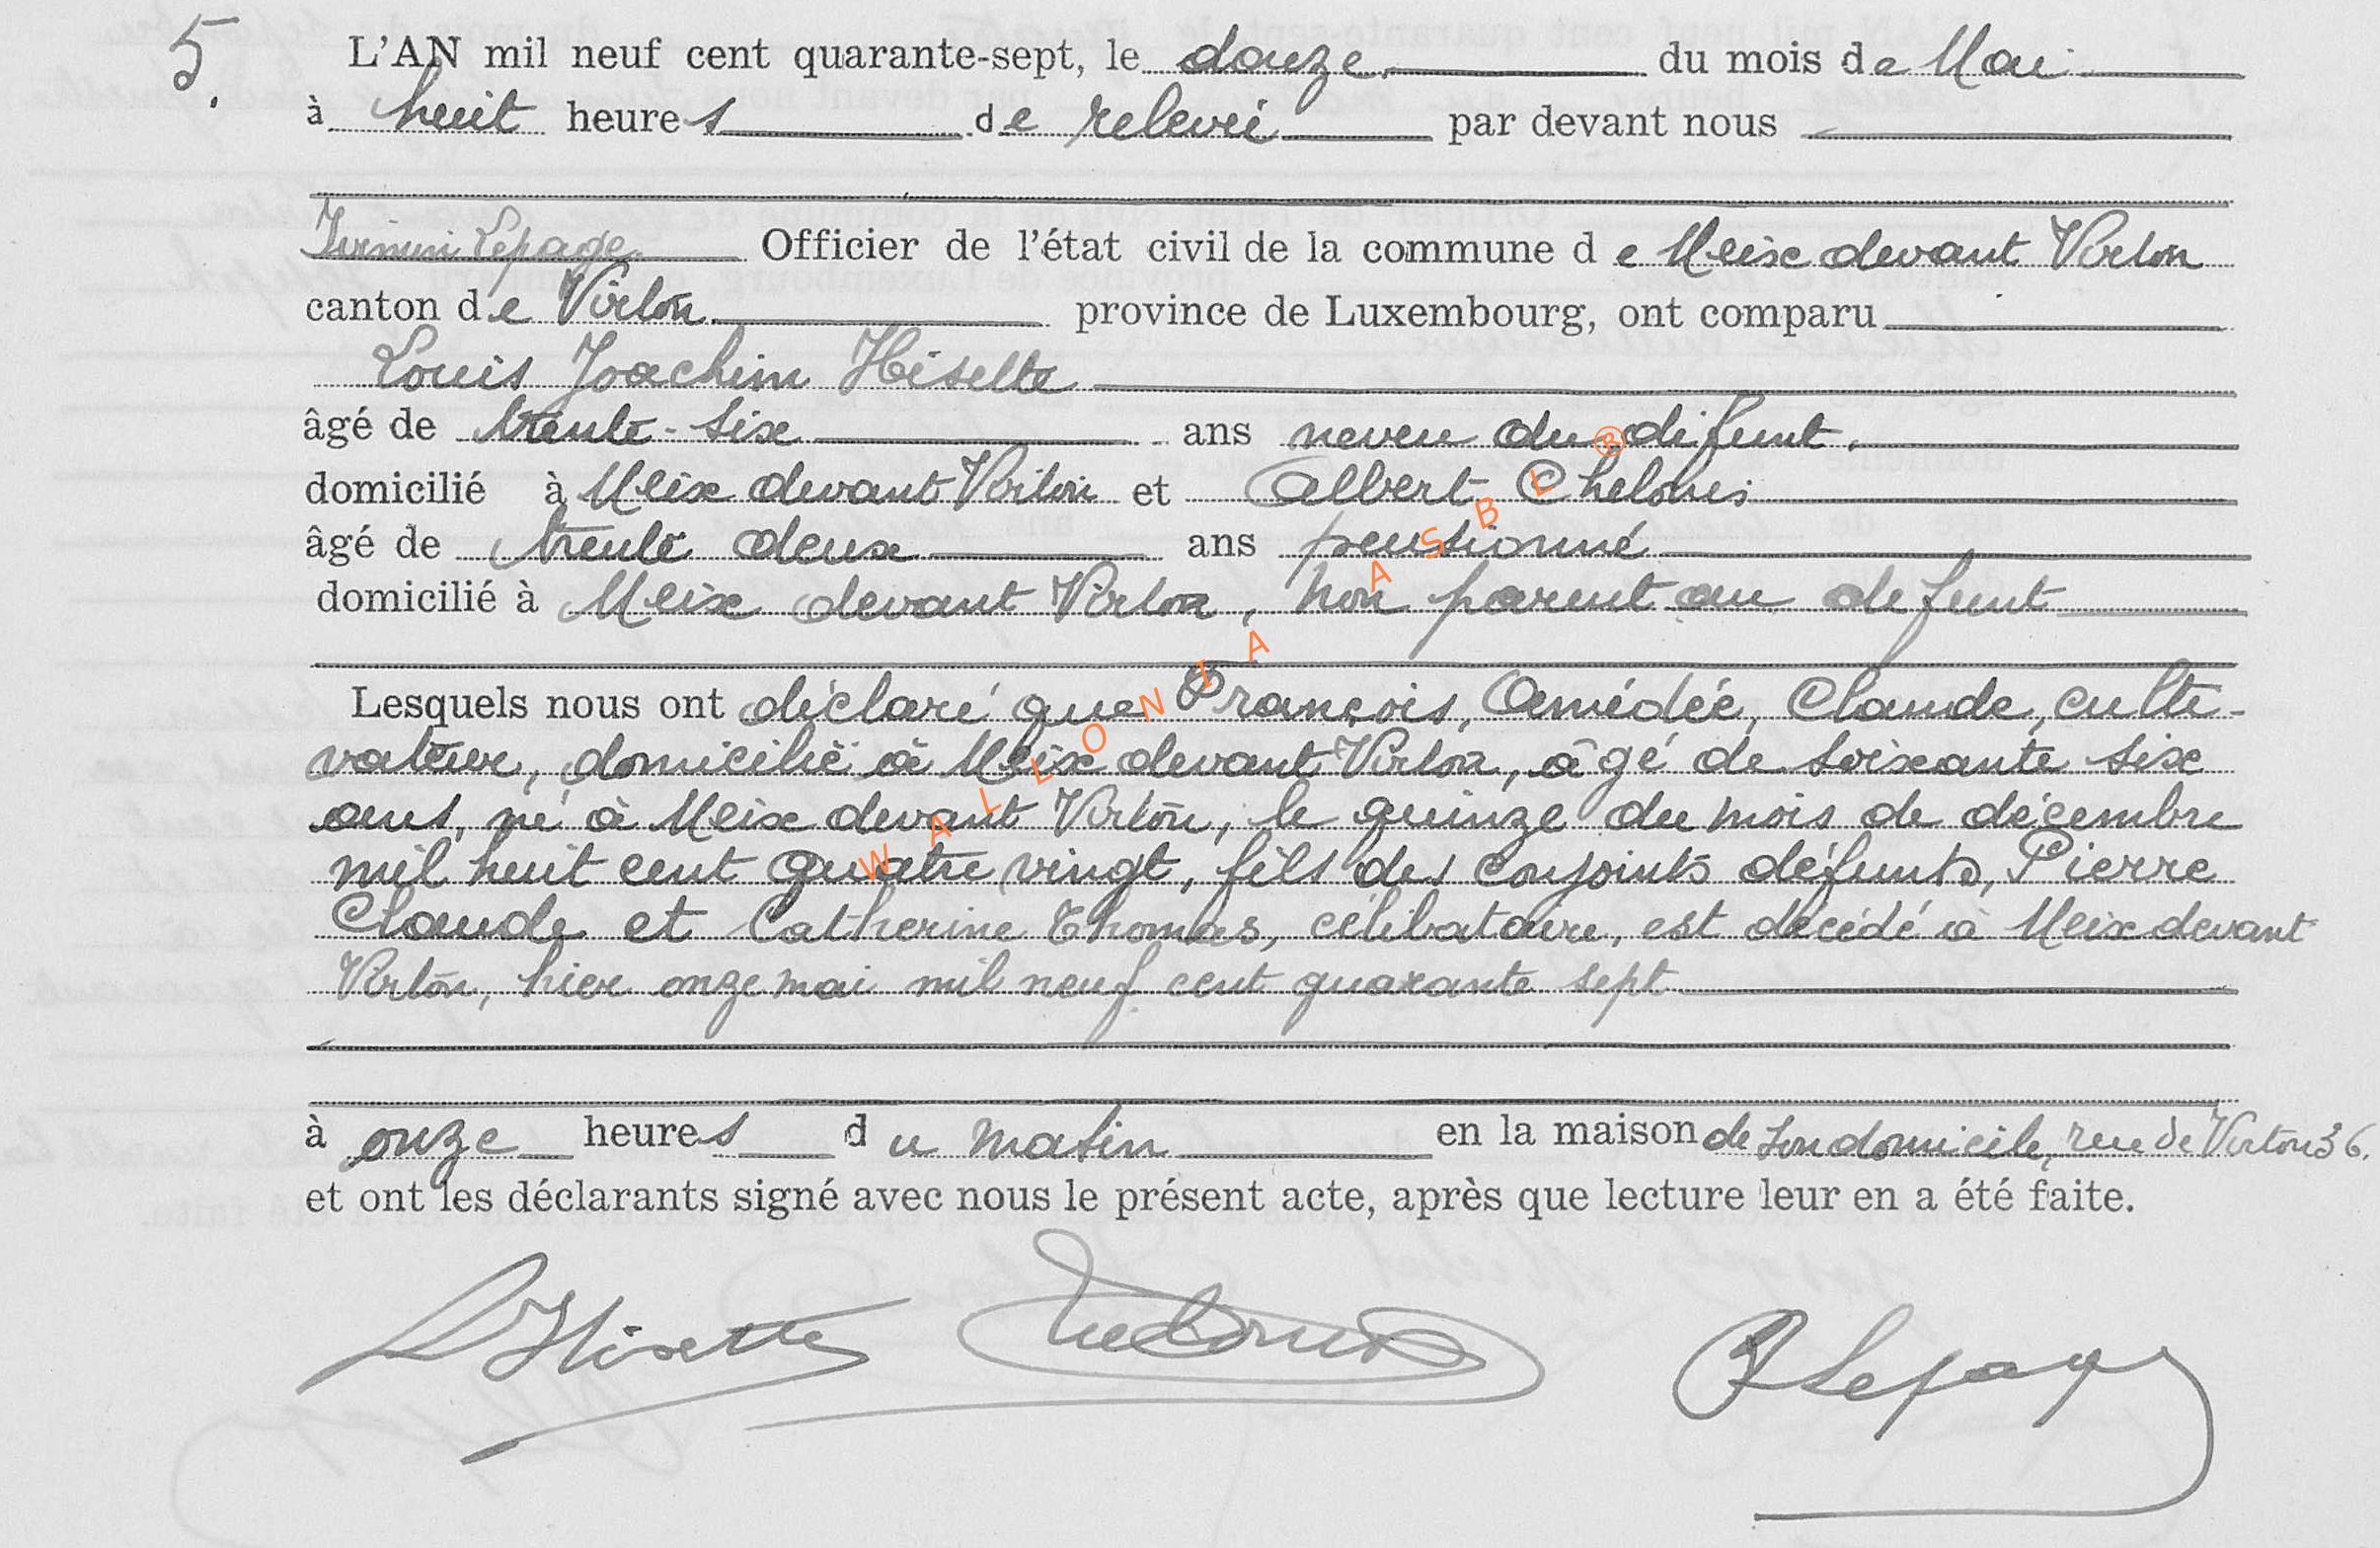 5.
L'AN mil neuf cent quarante-sept, le douze du mois de Mai
à huit heures de relevée par devant nous
Firmin Lepage Officier de l'état civil de la commune de Meix devant Virton
canton de Virton province de Luxembourg, ont comparu
Louis Joachim Hisette
âgé de trente-six ans neveu du défunt.
domicilié à Meix devant Virton et Albert
âgé de trente deux ans pensionné
domicilié à Meix devant Virton, non parent au defunt
Lesquels nous ont déclaré que François, Amédée, Claude, culti-
vateur, domicilié à Meix devant Virton, âgé de soixante six
ans, né à Meix devant Virton, le quinze du mois de décembre
mil huit cent quatre vingt, fils des conjoints défunts, Pierre
Claude et Catherine Thomas, célibataire, est décédé à Meix devant
Virton, hier onze mai mil neuf cent quarante sept
à onze heures du matin en la maison de son domicile, rue de Virton 36.
et ont les déclarants signé avec nous le présent acte, après que lecture leur en a été faite.
L Hisette
Lepage
WALLONIA ASBL ®